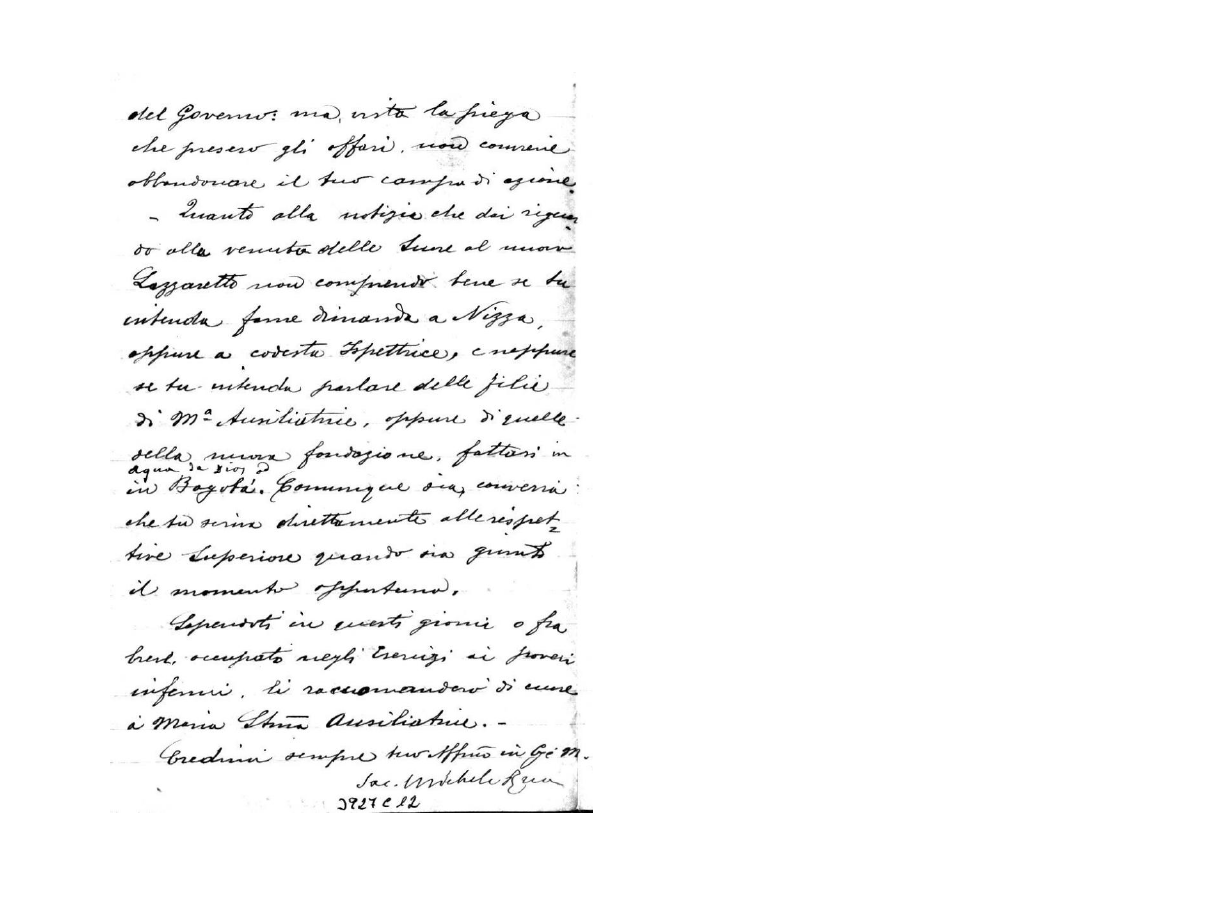 del Governo: ma, vista la piega
che presero gli affari, non conviene
abbandonare il tuo campo di azione.
- Quanto alla notizia che dai riguar
do alla venuta delle Suore al nuovo
Lazzaretto non comprendo bene se tu
intenda farne dimanda a Nizza,
oppure a codesta Ispettrice, e neppure
se tu intenda parlare delle figlie
di Mª Ausiliatrice, oppure di quelle
della nuova fondazione, fattasi in
Agua de Dios od
in Bogotá. Comunque sia, converrà
che tu scriva direttamente alle rispet=
tive Superiore quando sia giunto
il momento opportuno.
Sapendoti in questi giorni o fra
breve, occupato negli Esercizi ai poveri
infermi, li raccomanderò di cuore
a Maria SSma Ausiliatrice. -
Credimi sempre tuo Affmo in G. e M.
Sac. Michele Rua
3927 C 12